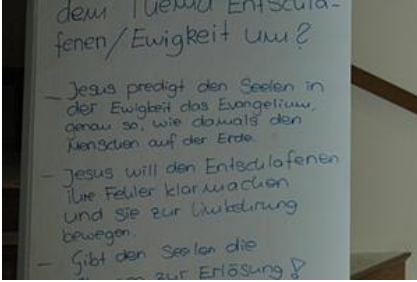 dem Thema Entschla-
fenen/Ewigkeit um?
- Jesus predigt den Seelen in
der Ewigkeit das Evangelium,
genau so, wie damals den
Menschen auf der Erde.
- Jesus will den Entschlafenen
ihre Fehler klar machen
und sie zur Umkehrung
bewegen.
- Gibt den Seelen die
zur Erlösung!